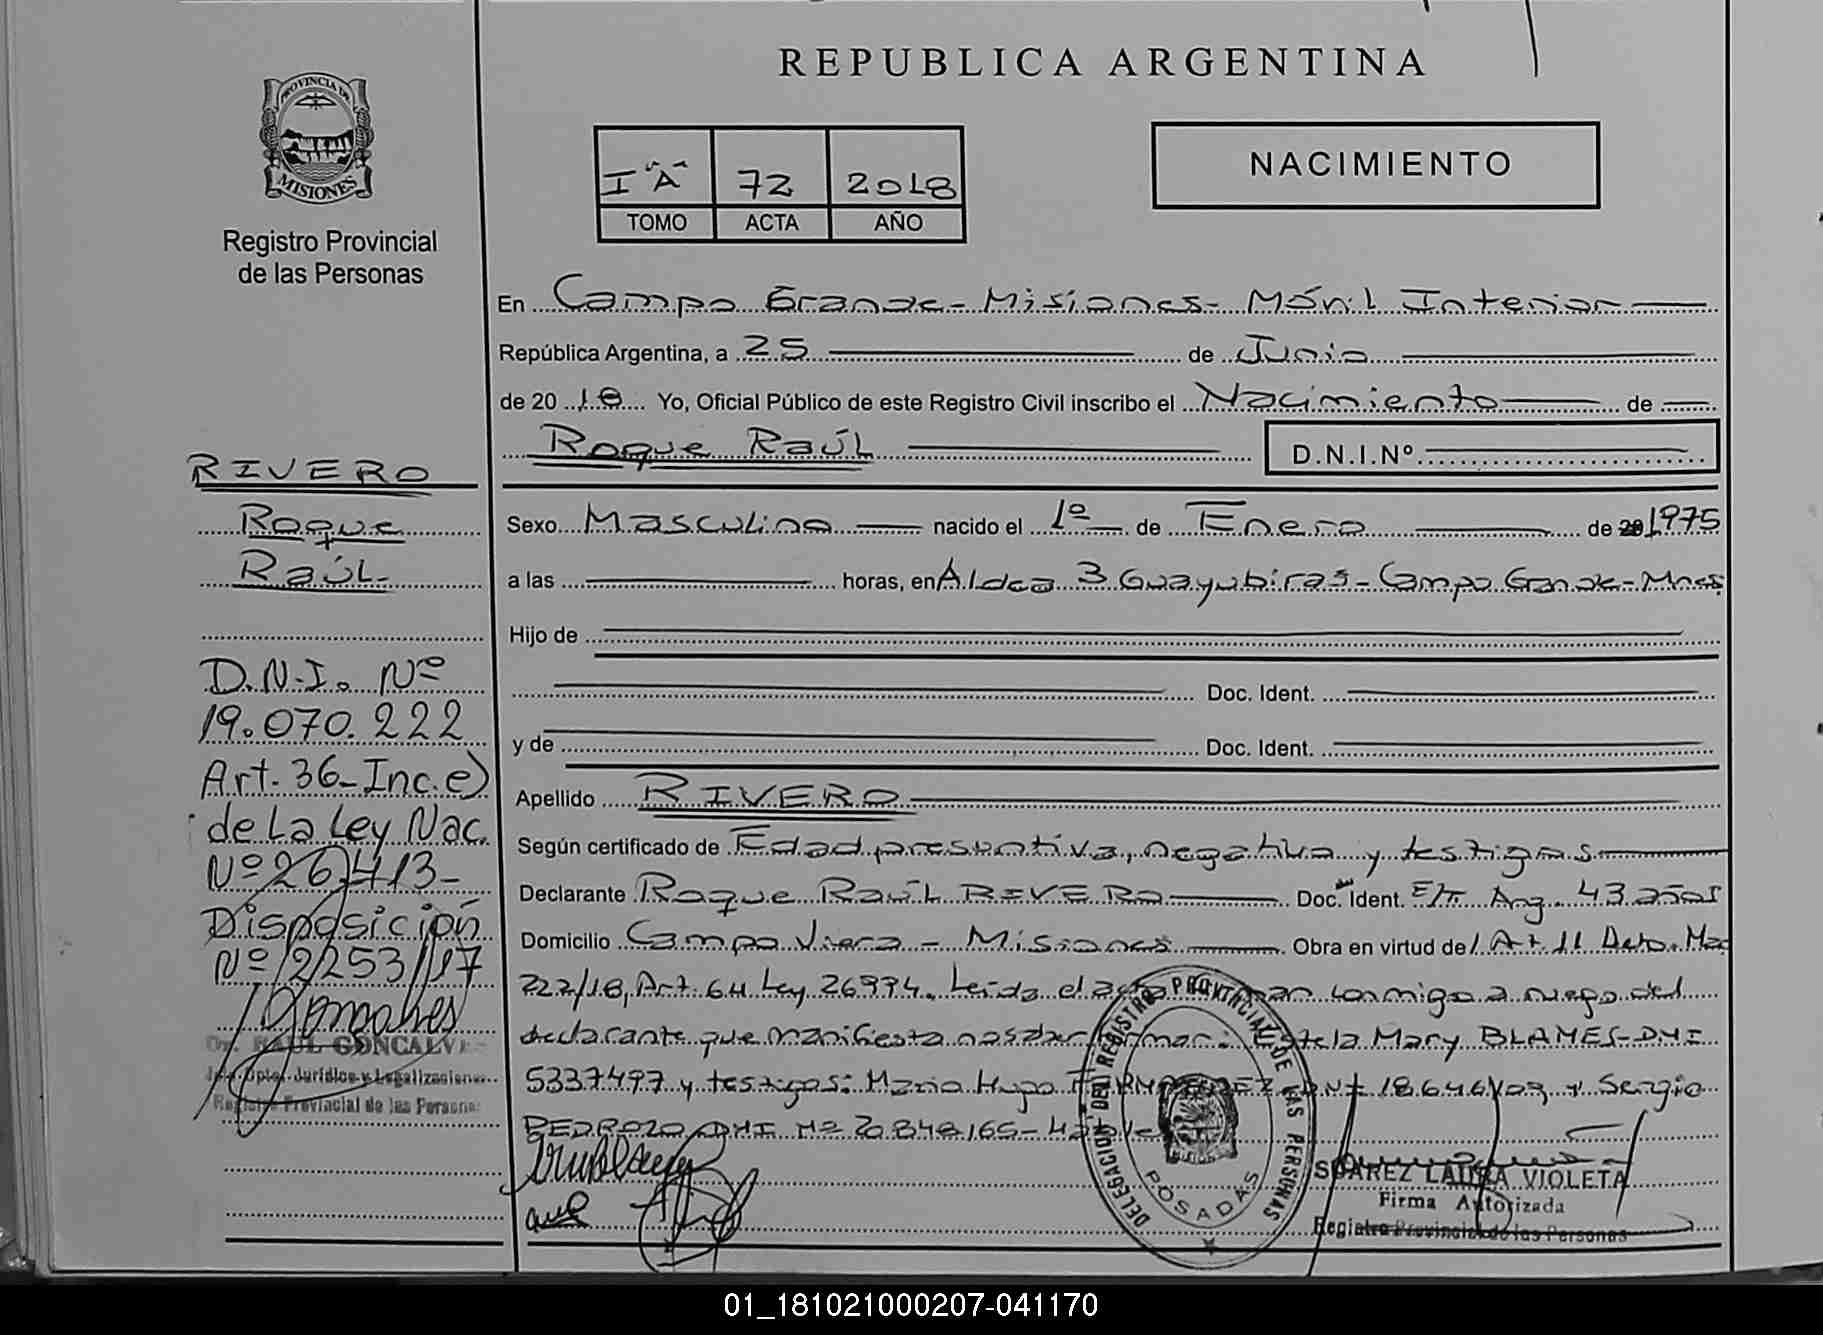 REPUBLICA ARGENTINA
PROVINCIA DE
MISIONES
Registro Provincial
de las Personas
I "A" 72 2018
TOMO ACTA AÑO
NACIMIENTO
En Campo Grande - Misiones - Móvil Interior
República Argentina, a 25 de Junio
de 20 18 Yo, Oficial Público de este Registro Civil inscribo el Nacimiento de
Roque Raúl D.N.I.Nº
Sexo Masculino nacido el 1º de Enero de 20 1975
a las horas, en Aldea 3 Guayubiras - Campo Grande - Mnes
Hijo de
Doc. Ident.
y de Doc. Ident.
Apellido RIVERO
Según certificado de Edad presuntiva, negativa y testigos
Declarante Roque Raúl RIVERO Doc. Ident. Arg. 43 años
Domicilio Campo Viera - Misiones Obra en virtud de l Art. 11 Deto. Nac
222/18, Art. 64 Ley 26994. Leída el acta conmigo a ruego del
declarante que manifiesta no saber firmar: Mary BLAMES - DNI
5337497 y testigos: Mario Hugo DNI 18.646.103 y Sergio
PEDROZO DNI Nº 20848165 -
RIVERO
Roque
Raúl
D.N.I. Nº
19.070.222
Art. 36 - Inc. e)
de La Ley Nac.
Nº 26.413 -
Disposición
Nº 2253/17
Dr. RAUL GONCALVES
Dpto. Jurídico y Legalizaciones
Registro Provincial de las Personas
DELEGACION DEL REGISTRO PROVINCIAL DE LAS PERSONAS
POSADAS
SUAREZ LAURA VIOLETA
Firma Autorizada
Registro Provincial de las Personas
01_181021000207-041170